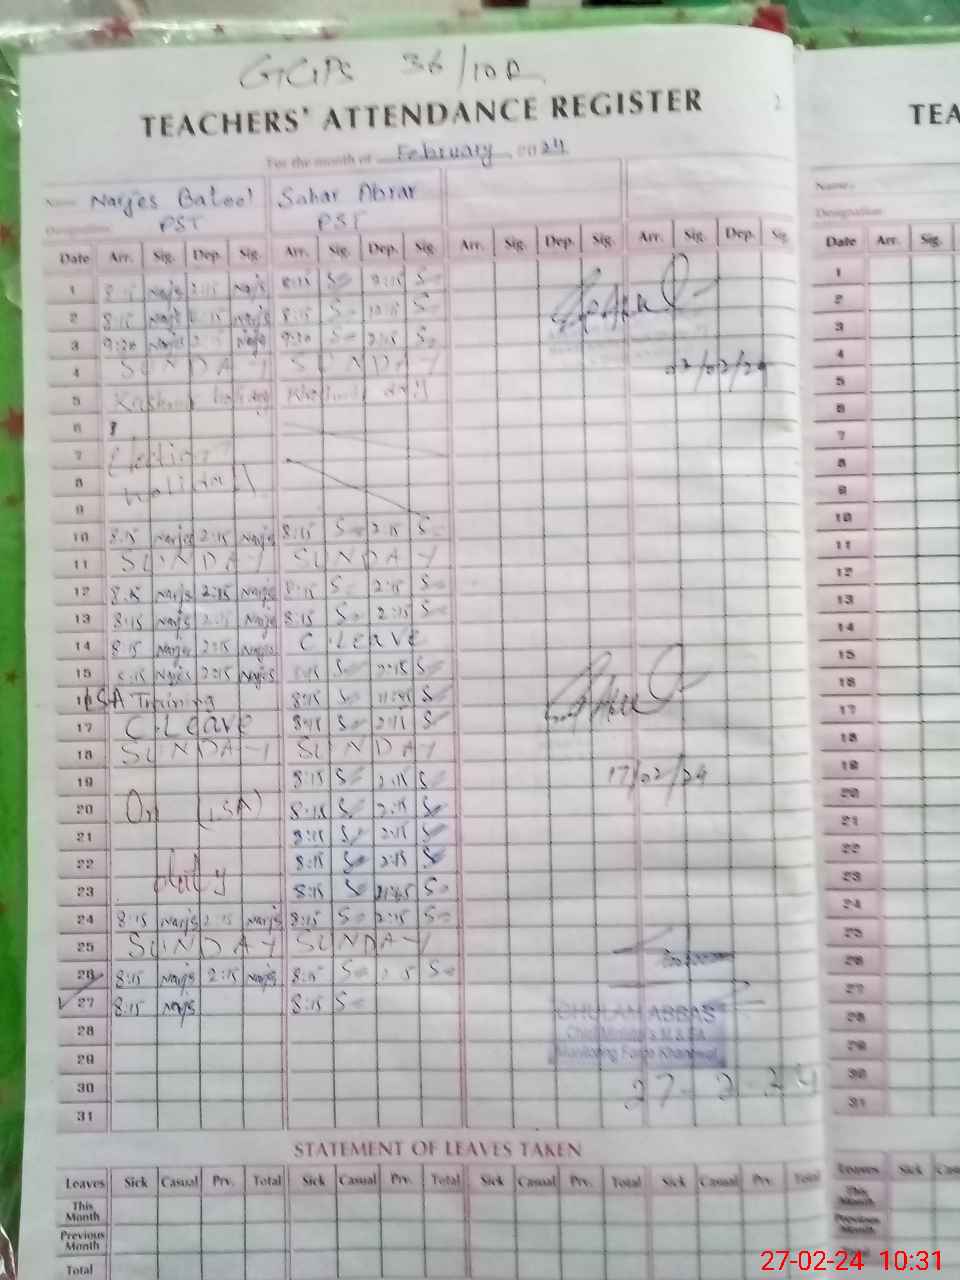 GGPS 36/10R
TEACHERS' ATTENDANCE REGISTER 2
TEA
For the month of February 2024
Name Narjes Batool Sahar Abrar
Name
Designation PST PST
Designation
Date Arr. Sig. Dep. Sig. Arr. Sig. Dep. Sig. Arr. Sig. Dep. Sig. Arr. Sig. Dep. Sig.
Date Arr. Sig.
1 8:15 Narjs 2:15 Narjs 8:15 S 2:15 S
2 8:15 Narjs Narjs 8:15 S 12:15 S
3 9:20 Narjs Narjs 9:20 S 2:15 S
4 SUNDAY SUNDAY
02/02/24
5 Kashmir holiday
6
7 Election
8 holidays
9
10 8:15 Narjs 2:15 Narjs 8:15 S 2:15 S
11 SUNDAY SUNDAY
12 8:15 Narjs 2:15 Narjs 8:15 S 2:15 S
13 8:15 Narjs 2:15 Narjs 8:15 S 2:15 S
14 8:15 Narjs 2:15 Narjs C.Leave
15 8:15 Narjs 2:15 Narjs 8:15 S 2:15 S
16 LSA Training 8:15 S 11:45 S
17 C.Leave 8:15 S 2:15 S
18 SUNDAY SUNDAY
19 8:15 S 2:15 S
17/02/24
20 On (LSA) 8:15 S 2:15 S
21 8:15 S 2:15 S
22 8:15 S 2:15 S
23 duty 8:15 S 11:45 S
24 8:15 Narjs 2:15 Narjs 8:15 S 2:15 S
25 SUNDAY SUNDAY
26 8:15 Narjs 2:15 Narjs 8:15 S S
27 8:15 Narjs 8:15 S
GHULAM ABBAS
28
Chief Minister's M & EA
29
Monitoring Force Khanewal
30
27-2-24
31
1
2
3
4
5
6
7
8
9
10
11
12
13
14
15
16
17
18
19
20
21
22
23
24
25
26
27
28
29
30
31
STATEMENT OF LEAVES TAKEN
Leaves Sick Casual Prv. Total Sick Casual Prv. Total Sick Casual Prv. Total Sick Casual Prv. Total
Leaves Sick Cas
This
Month
This
Month
Previous
Month
Previous
Month
Total
Total
27-02-24 10:31